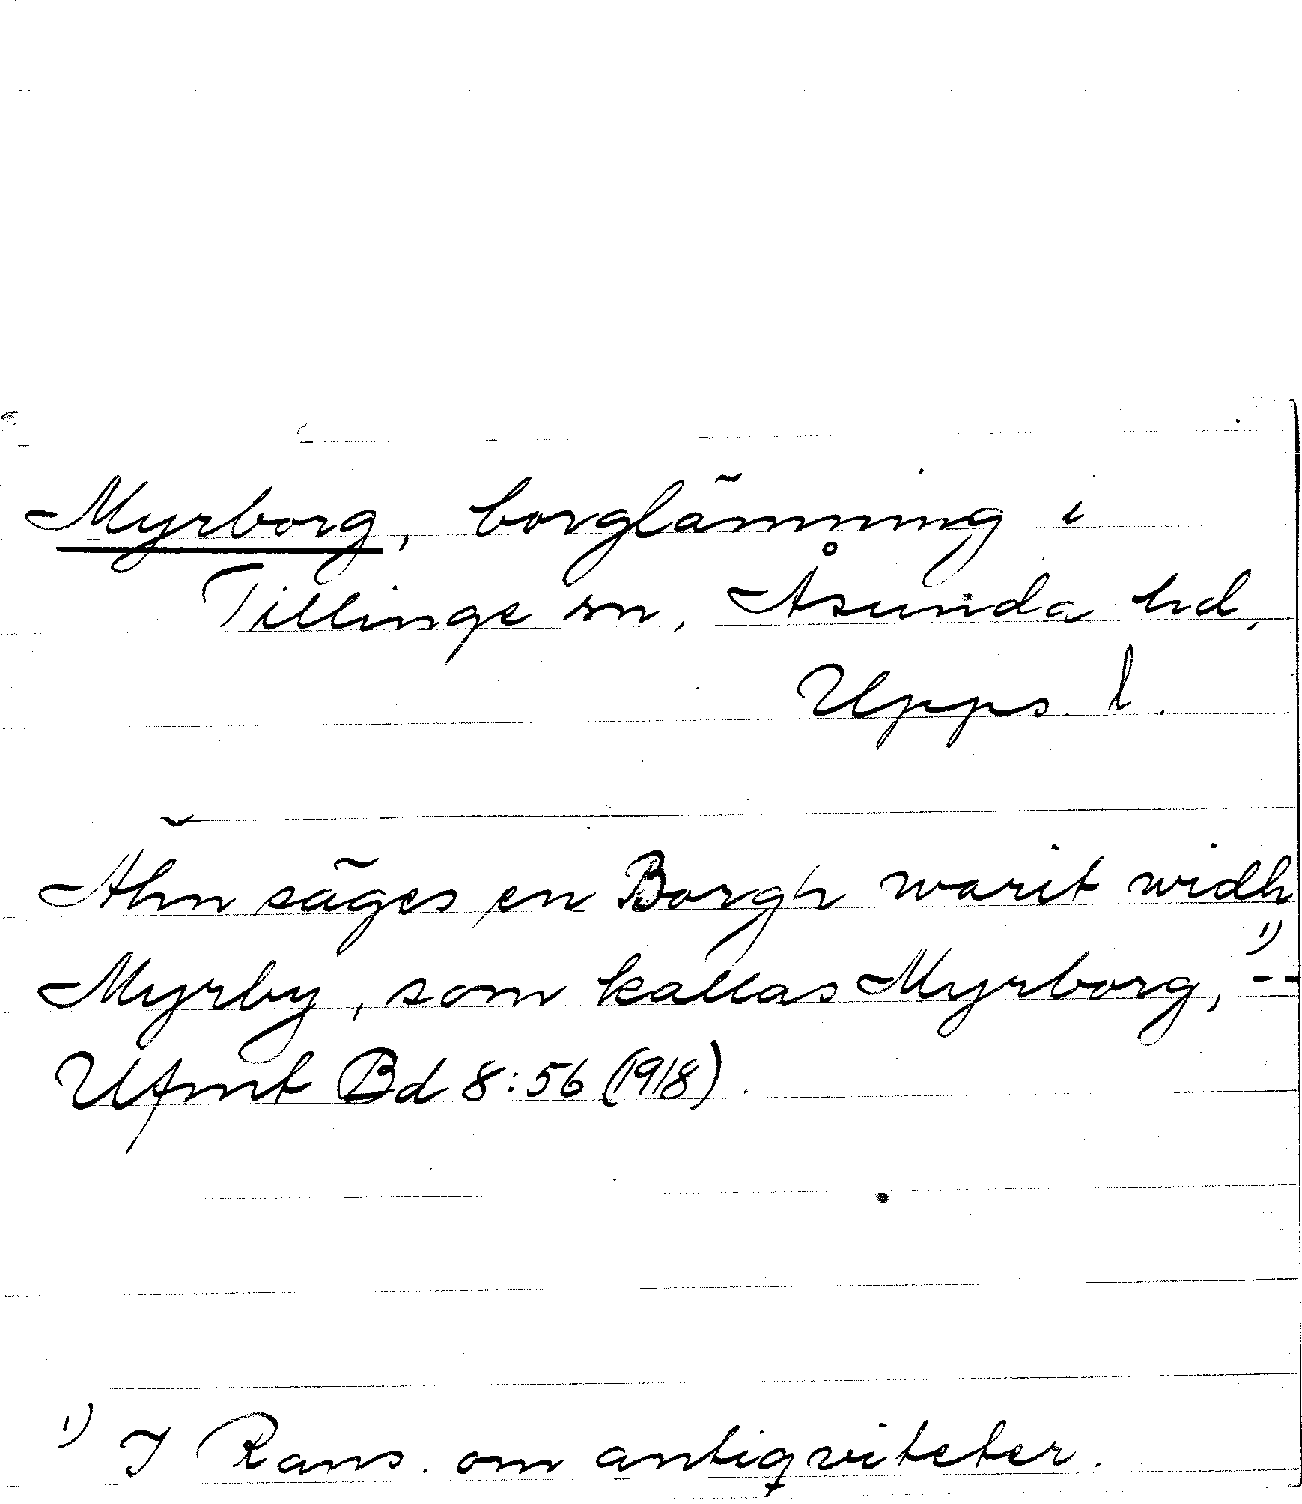 Myrborg, borglämning i
Tillinge sn, Åsunda hd,
Upps. l.
Ähn säges en Borgh warit widh
Myrby, som kallas Myrborg,¹⁾ --
Ufmt Bd 8:56 (1918).
¹⁾ I Rans. om antiqviteter.